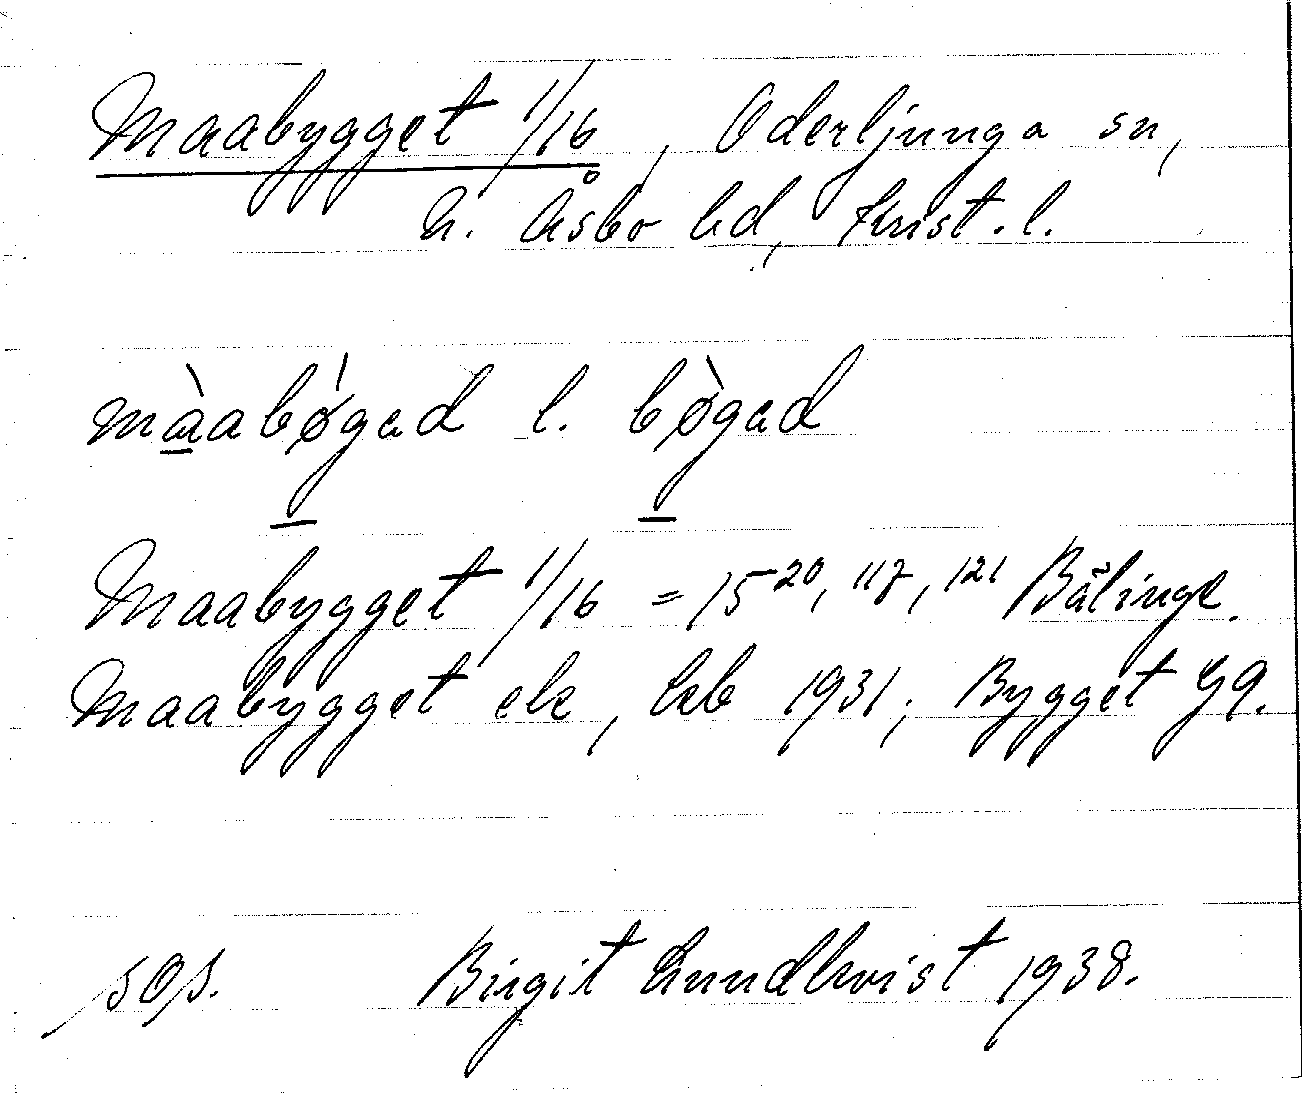 Maabygget 1/16, Oderljunga sn,
N. Åsbo hd, Krist. l.
màabǿgad l. bø̀gad
Maabygget 1/16 = 15²⁰, ¹¹⁷, ¹²¹ Bälinge.
Maabygget ek, kb 1931; Bygget G9.
sos. Birgit Lundkvist 1938.